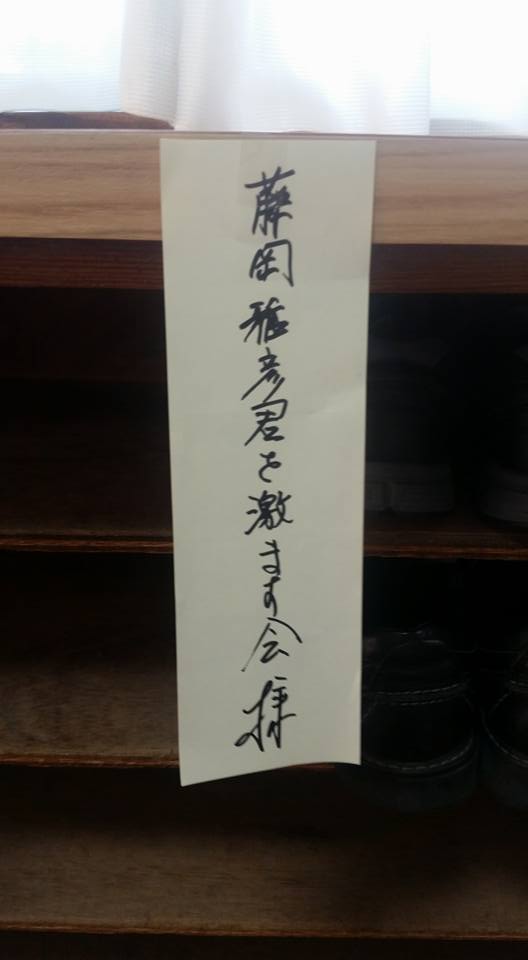 藤岡雅彦君を激ます会様